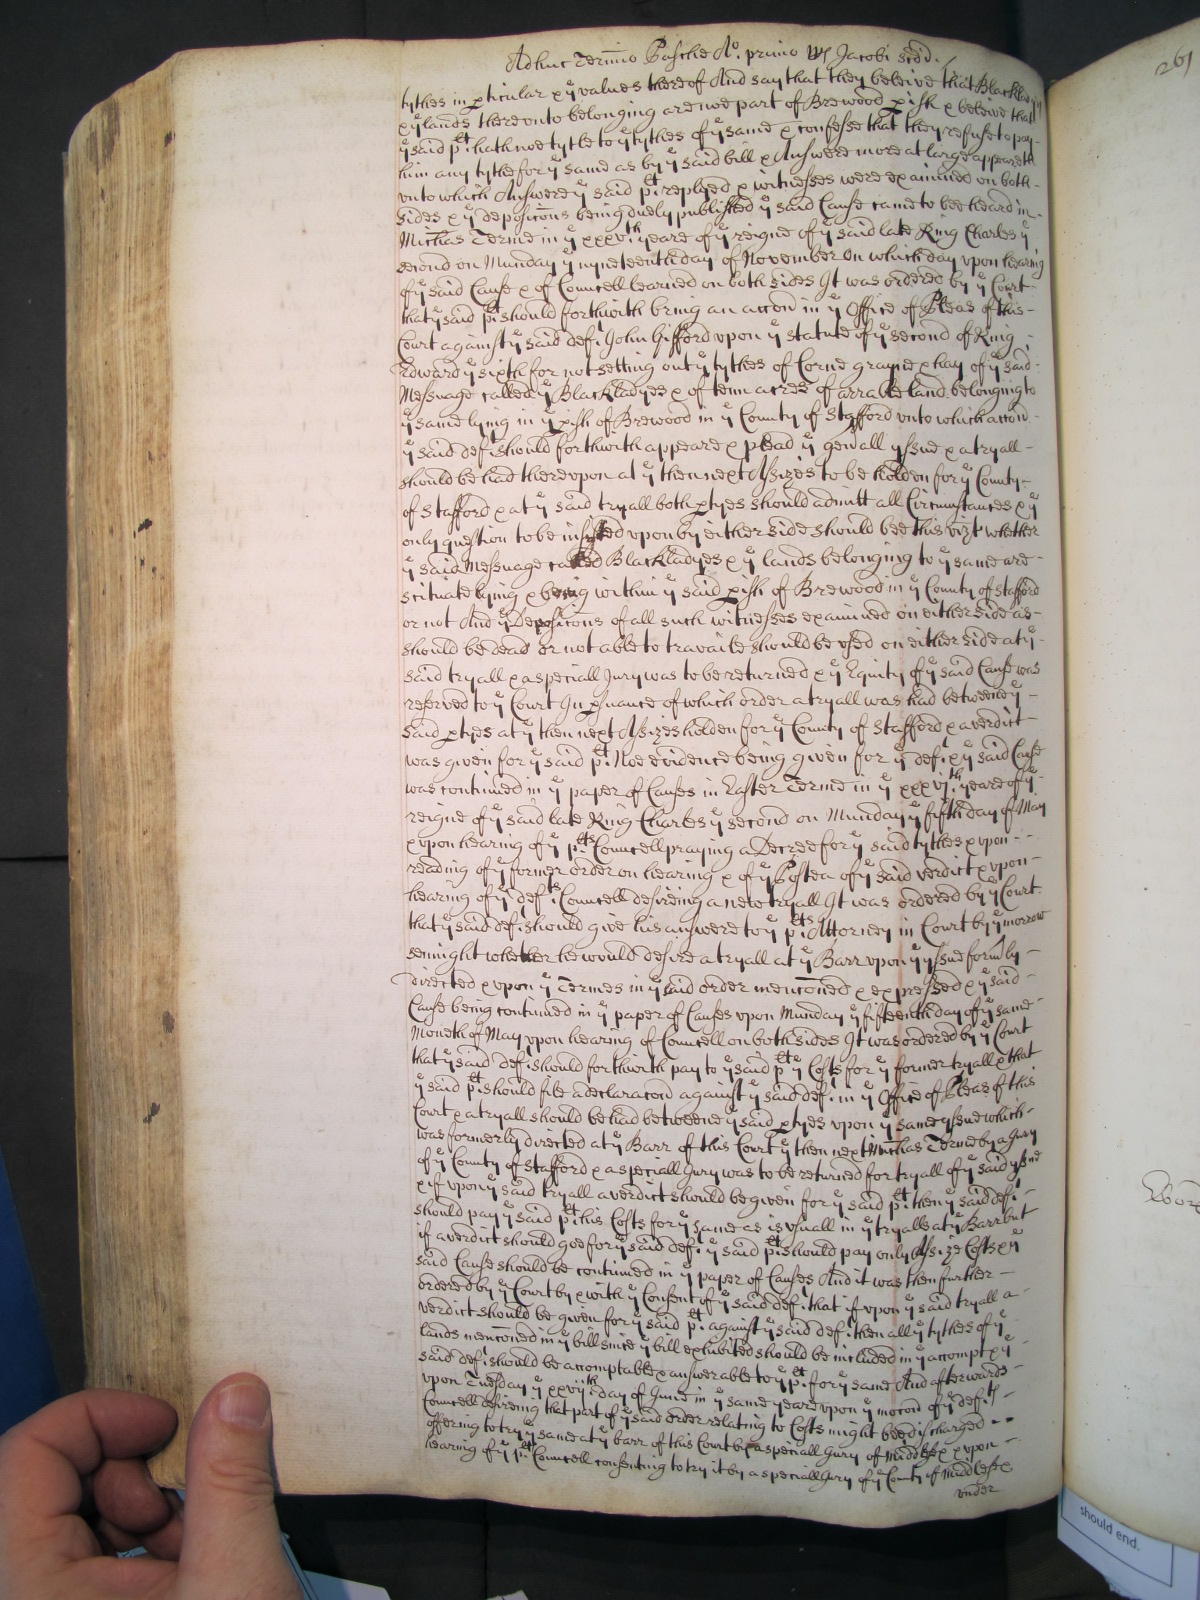 Adhuc Termio Pasche Ao. primo Rs Jacobi scdi.
tythes in pticular & ye values thereof And say that they beleive that Blackladyes
& ye lands thereunto belonging are noe part of Brewood pish & beleive that
ye said plt. hath noe tytle to ye tythes of ye same & confesse that they refuse to pay
him any tythe for ye same as by ye said bill & Answere more at large appeareth
unto which Answere ye said plt. replyed & witnesses were examined on both
sides & ye deposicons being duely published ye said Cause came to bee heard in
Michas Terme in ye xxxvth. yeare of ye reigne of ye said late King Charles ye
second on Munday ye nyneteenth day of November on which day upon hearing
of ye said Cause & of Councell learned on both sides It was ordered by ye Court
that ye said plt. should forthwith bring an accon in ye Office of Pleas of this
Court against ye said deft. John Gifford upon ye statute of ye second of King
Edward ye sixth for not setting out ye tythes of Corne grayne & hay of ye said
Messuage called ye Blackladyes & of tenn acres of arrable land belonging to
ye same lying in ye pish of Brewood in ye County of Stafford unto which accon
ye said deft. should forthwith appeare & plead ye genall yssue & a tryall
should be had thereupon at ye then next Assizes to be holden for ye County
of Stafford & at ye said tryall both ptyes should admitt all Circumstances & ye
only question to be insisted upon by either side should bee this vizt whether
ye said Messuage called Blackladyes & ye lands belonging to ye same are
scituate lying & being within ye said pish of Brewood in ye County of Stafford
or not And ye Deposicons of all such witnesses examined on either side as
should be dead or not able to travaile should be used on either side at ye
said tryall & a speciall Jury was to be returned & ye Equity of ye said Cause was
reserved to ye Court In psuance of which order a tryall was had betweene ye
said ptyes at ye then next Assizes holden for ye County of Stafford & a verdict
was given for ye said plt. Noe evidence being given for ye deft. & ye said Cause
was continued in ye paper of Causes in Easter Terme in ye xxxvjth. yeare of ye
reigne of ye said late King Charles ye second on Munday ye fifth day of May
& upon hearing of ye plts. Councell praying a Decree for ye said tythes & upon
reading of ye former order on hearing & of ye Postea of ye said verdict & upon
hearing of ye defts. Councell desireing a new tryall It was ordered by ye Court
that ye said deft. should give his answere to ye plts. Attorney in Court by ye morrow
sennight whether he would desire a tryall at ye Barr upon ye yssue formly
directed & upon ye Termes in ye said order menconed & expressed & ye said
Cause being continued in ye paper of Causes upon Munday ye fifteenth day of ye same
Moneth of May upon hearing of Councell on both sides It was ordered by ye Court
that ye said deft. should forthwith pay to ye said plt ye Costs for ye former tryall & that
ye said plt. should file a declaracon against ye said deft. in ye Office of Pleas of this
Court & a tryall should be had betweene ye said ptyes upon ye same yssue which
was formerly directed at ye Barr of this Court ye then next Michas Terme by a Jury
of ye County of Stafford & a speciall Jury was to be returned for tryall of ye said yssue
& if upon ye said tryall a verdict should be given for ye said plt. then ye said deft.
should pay ye said plt. his Costs for ye same as is usuall in ye tryalls at ye Barr but
if a verdict should goe for ye said deft. ye said plt. should pay only Assize Costs & ye
said Cause should be continued in ye paper of Causes And it was then further
ordered by ye Court by & with ye Consent of ye said deft. that if upon ye said tryall a
verdict should be given for ye said plt. against ye said deft. then all ye tythes of ye
lands menconed in ye bill since ye bill exhibited should be included in ye accompt & ye
said deft. should be accomptable & answerable to ye plt. for ye same And afterwards
upon Tuesday ye xxvijth. day of June in ye same yeare upon ye mocon of ye defts.
Councell desireing that part of ye said order relating to Costs might bee discharged
offering to try ye same at ye barr of this Court by a speciall Jury of Middlesex & upon
hearing of ye plts. Councell consenting to try it by a speciall Jury of ye County of Middlesex
under
261
should end.